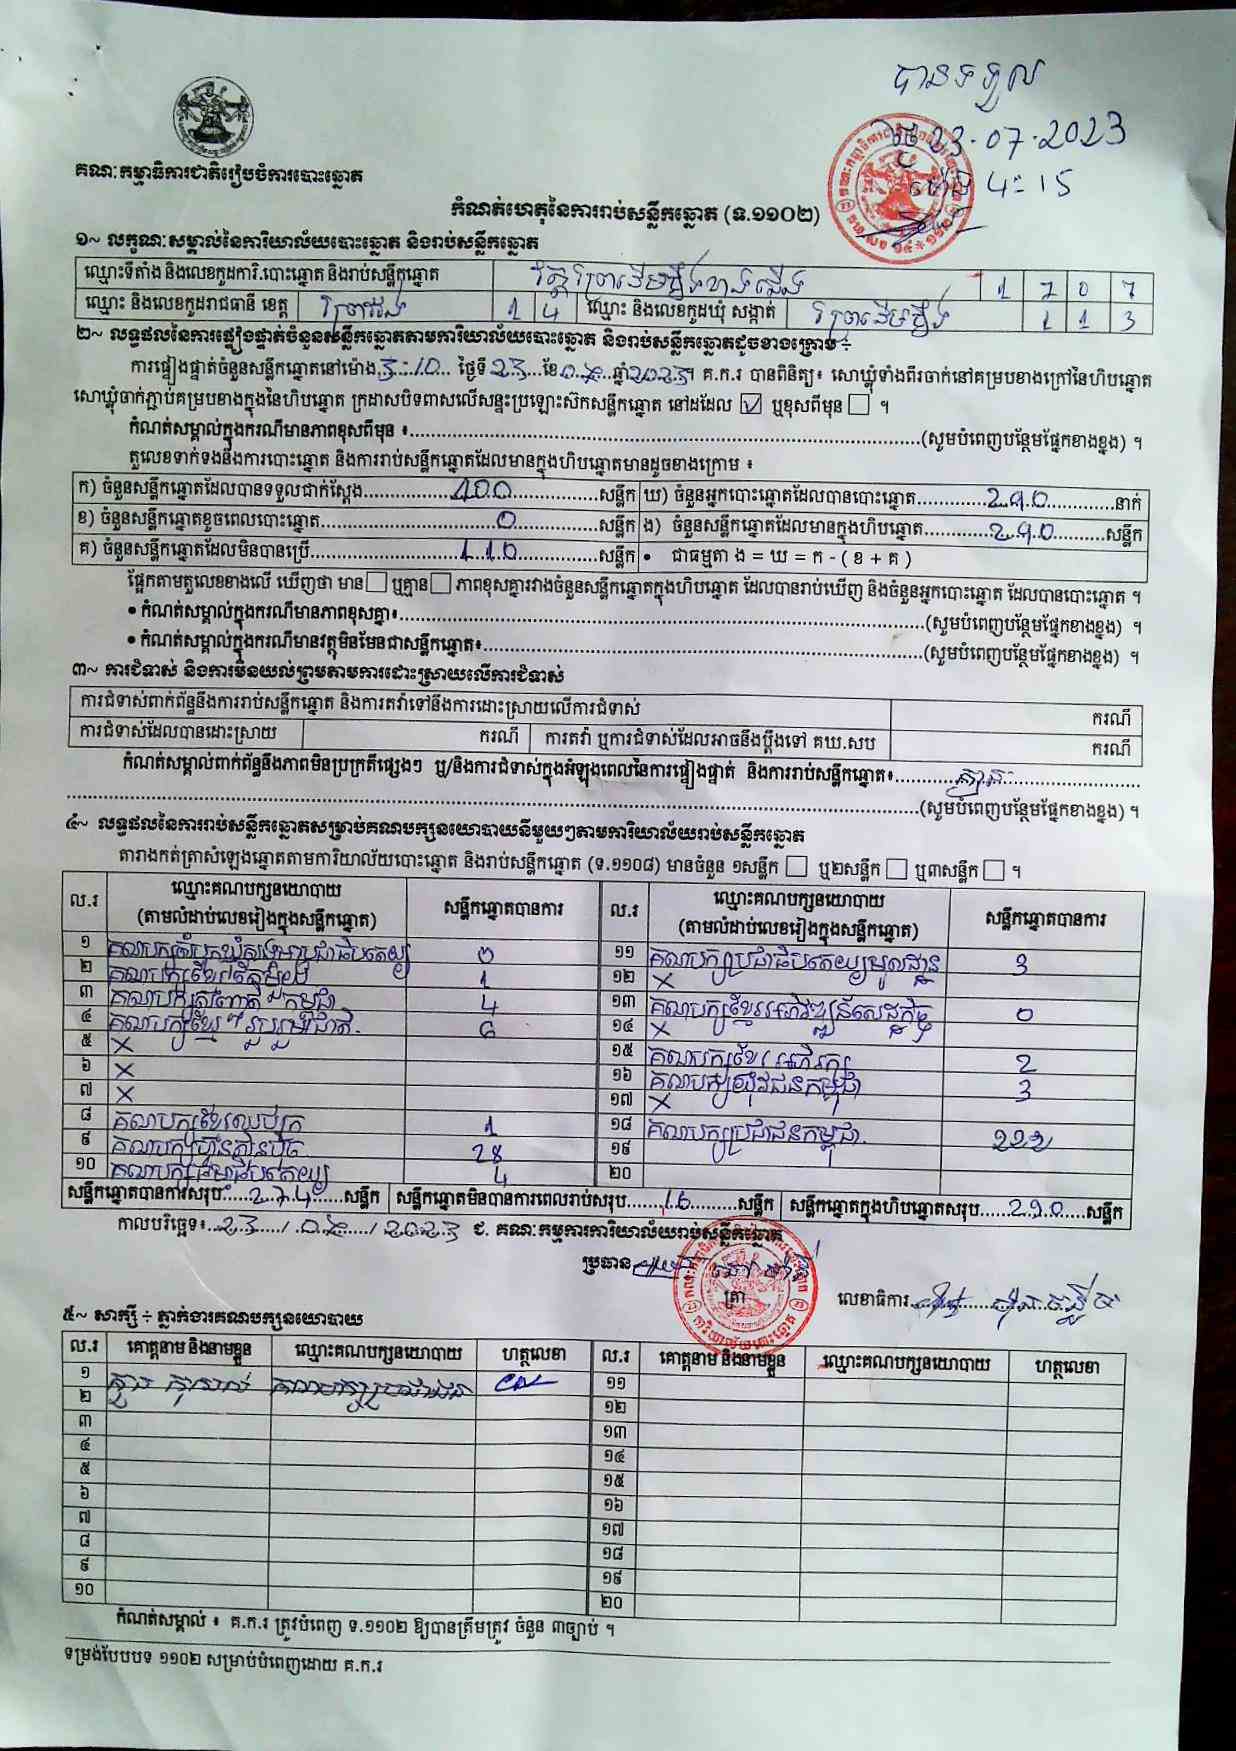 បានទទួល
ថ្ងៃ 23.07.2023
ម៉ោង 4:15
គណៈកម្មាធិការជាតិរៀបចំការបោះឆ្នោត
កំណត់ហេតុនៃការរាប់សន្លឹកឆ្នោត (ទ.១១០២)
១~ លក្ខណៈសម្គាល់នៃការិយាល័យបោះឆ្នោត និងរាប់សន្លឹកឆ្នោត
ឈ្មោះទីតាំង និងលេខកូដការិ.បោះឆ្នោត និងរាប់សន្លឹកឆ្នោត 1 7 0 7
ឈ្មោះ និងលេខកូដរាជធានី ខេត្ត ព្រៃវែង 1 4 ឈ្មោះ និងលេខកូដឃុំ សង្កាត់ 1 1 3
២~ លទ្ធផលនៃការផ្ទៀងផ្ទាត់ចំនួនសន្លឹកឆ្នោតតាមការិយាល័យបោះឆ្នោត និងរាប់សន្លឹកឆ្នោតដូចខាងក្រោម ÷
ការផ្ទៀងផ្ទាត់ចំនួនសន្លឹកឆ្នោតនៅម៉ោង 3:10 ថ្ងៃទី 23 ខែ 07 ឆ្នាំ 2023។ គ.ក.រ បានពិនិត្យ៖ សោឃ្លុំទាំងពីរចាក់នៅគម្របខាងក្រៅនៃហិបឆ្នោត
សោឃ្លុំចាក់ភ្ជាប់គម្របខាងក្នុងនៃហិបឆ្នោត ក្រដាសបិទពាសលើសន្ទះប្រឡោះស៊កសន្លឹកឆ្នោត នៅដដែល ☑ ឬខុសពីមុន ☐ ។
កំណត់សម្គាល់ក្នុងករណីមានភាពខុសពីមុន ៖ (សូមបំពេញបន្ថែមផ្នែកខាងខ្នង) ។
តួលេខទាក់ទងនឹងការបោះឆ្នោត និងការរាប់សន្លឹកឆ្នោតដែលមានក្នុងហិបឆ្នោតមានដូចខាងក្រោម ៖
ក) ចំនួនសន្លឹកឆ្នោតដែលបានទទួលជាក់ស្តែង 400 សន្លឹក ឃ) ចំនួនអ្នកបោះឆ្នោតដែលបានបោះឆ្នោត 290 នាក់
ខ) ចំនួនសន្លឹកឆ្នោតខូចពេលបោះឆ្នោត 0 សន្លឹក ង) ចំនួនសន្លឹកឆ្នោតដែលមានក្នុងហិបឆ្នោត 290 សន្លឹក
គ) ចំនួនសន្លឹកឆ្នោតដែលមិនបានប្រើ 110 សន្លឹក • ជាធម្មតា ង = ឃ = ក - ( ខ + គ )
ផ្អែកតាមតួលេខខាងលើ ឃើញថា មាន ☐ ឬគ្មាន ☐ ភាពខុសគ្នារវាងចំនួនសន្លឹកឆ្នោតក្នុងហិបឆ្នោត ដែលបានរាប់ឃើញ និងចំនួនអ្នកបោះឆ្នោត ដែលបានបោះឆ្នោត ។
• កំណត់សម្គាល់ក្នុងករណីមានភាពខុសគ្នា៖ (សូមបំពេញបន្ថែមផ្នែកខាងខ្នង) ។
• កំណត់សម្គាល់ក្នុងករណីមានវត្ថុមិនមែនជាសន្លឹកឆ្នោត៖ (សូមបំពេញបន្ថែមផ្នែកខាងខ្នង) ។
៣~ ការជំទាស់ និងការមិនយល់ព្រមតាមការដោះស្រាយលើការជំទាស់
ការជំទាស់ពាក់ព័ន្ធនឹងការរាប់សន្លឹកឆ្នោត និងការតវ៉ាទៅនឹងការដោះស្រាយលើការជំទាស់ ករណី
ការជំទាស់ដែលបានដោះស្រាយ ករណី ការតវ៉ា ឬការជំទាស់ដែលអាចនឹងប្តឹងទៅ គឃ.សប ករណី
កំណត់សម្គាល់ពាក់ព័ន្ធនឹងភាពមិនប្រក្រតីផ្សេងៗ ឬ/និងការជំទាស់ក្នុងអំឡុងពេលនៃការផ្ទៀងផ្ទាត់ និងការរាប់សន្លឹកឆ្នោត៖ គ្មាន
(សូមបំពេញបន្ថែមផ្នែកខាងខ្នង) ។
៤~ លទ្ធផលនៃការរាប់សន្លឹកឆ្នោតសម្រាប់គណបក្សនយោបាយនីមួយៗតាមការិយាល័យរាប់សន្លឹកឆ្នោត
តារាងកត់ត្រាសំឡេងឆ្នោតតាមការិយាល័យបោះឆ្នោត និងរាប់សន្លឹកឆ្នោត (ទ.១១០៨) មានចំនួន ១សន្លឹក ☐ ឬ២សន្លឹក ☐ ឬ៣សន្លឹក ☐ ។
ល.រ ឈ្មោះគណបក្សនយោបាយ (តាមលំដាប់លេខរៀងក្នុងសន្លឹកឆ្នោត) សន្លឹកឆ្នោតបានការ ល.រ ឈ្មោះគណបក្សនយោបាយ (តាមលំដាប់លេខរៀងក្នុងសន្លឹកឆ្នោត) សន្លឹកឆ្នោតបានការ
១ ១១ គណបក្សប្រជាធិបតេយ្យមូលដ្ឋាន 3
២ 1 ១២ X
៣ 4 ១៣ គណបក្សខ្មែរអភិវឌ្ឍន៍សេដ្ឋកិច្ច 0
៤ គណបក្សខ្មែររួបរួមជាតិ 6 ១៤ X
៥ X ១៥ គណបក្សខ្មែរអភិរក្ស 2
៦ X ១៦ គណបក្សយុវជនកម្ពុជា 3
៧ X ១៧ X
៨ គណបក្សខ្មែរឈប់ក្រ 1 ១៨ គណបក្សប្រជាជនកម្ពុជា
៩ គណបក្សហ្វ៊ុនស៊ិនប៉ិច 28 ១៩
១០ គណបក្សធម្មាធិបតេយ្យ 4 ២០
សន្លឹកឆ្នោតបានការសរុប 274 សន្លឹក សន្លឹកឆ្នោតមិនបានការពេលរាប់សរុប 16 សន្លឹក សន្លឹកឆ្នោតក្នុងហិបឆ្នោតសរុប 290 សន្លឹក
កាលបរិច្ឆេទ៖ 23 / 07 / 2023 ជ. គណៈកម្មការការិយាល័យរាប់សន្លឹកឆ្នោត
ប្រធាន ត្រា លេខាធិការ
៥~ សាក្សី ÷ ភ្នាក់ងារគណបក្សនយោបាយ
ល.រ គោត្តនាម និងនាមខ្លួន ឈ្មោះគណបក្សនយោបាយ ហត្ថលេខា ល.រ គោត្តនាម និងនាមខ្លួន ឈ្មោះគណបក្សនយោបាយ ហត្ថលេខា
១ គណបក្សប្រជាជន ១១
២ ១២
៣ ១៣
៤ ១៤
៥ ១៥
៦ ១៦
៧ ១៧
៨ ១៨
៩ ១៩
១០ ២០
កំណត់សម្គាល់ ៖ គ.ក.រ ត្រូវបំពេញ ទ.១១០២ ឱ្យបានត្រឹមត្រូវ ចំនួន ៣ច្បាប់ ។
ទម្រង់បែបបទ ១១០២ សម្រាប់បំពេញដោយ គ.ក.រ